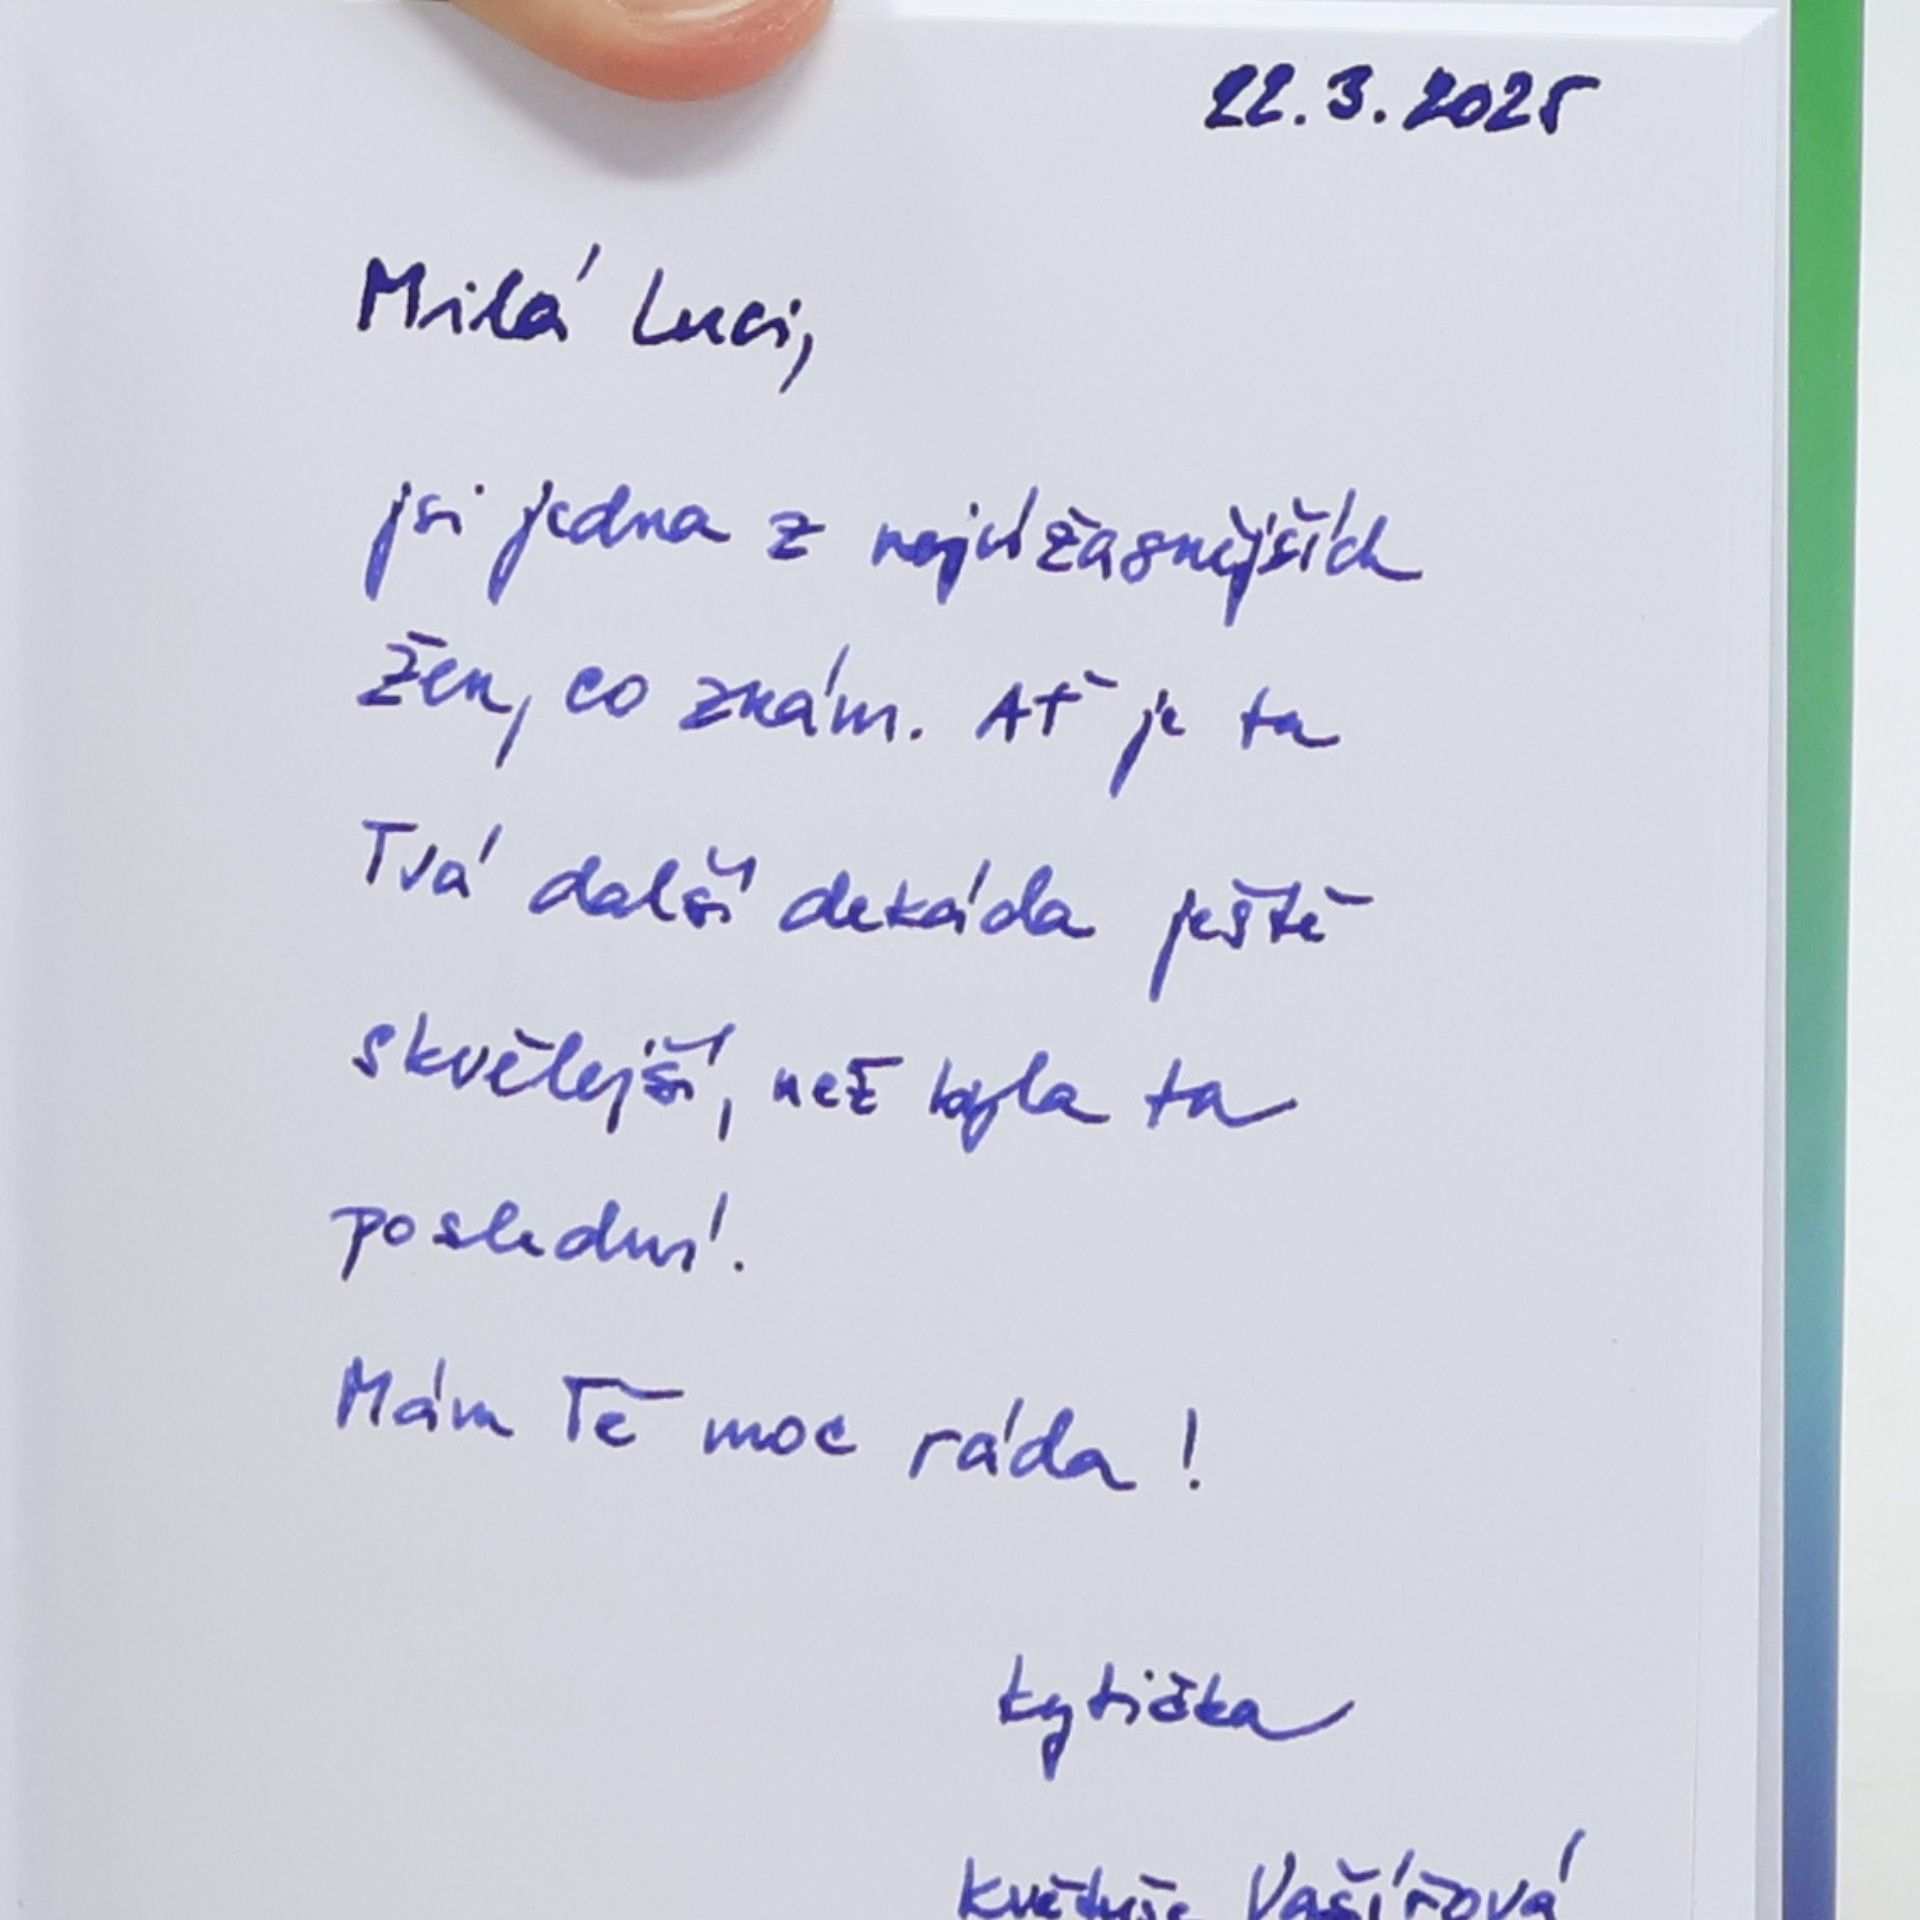 22.3.2025
Milá Luci,
jsi jedna z nejúžasnějších
žen, co znám. Ať je ta
Tvá další dekáda ještě
skvělejší, než byla ta
poslední.
Mám Tě moc ráda!
Kytička
Květuše Vašířová